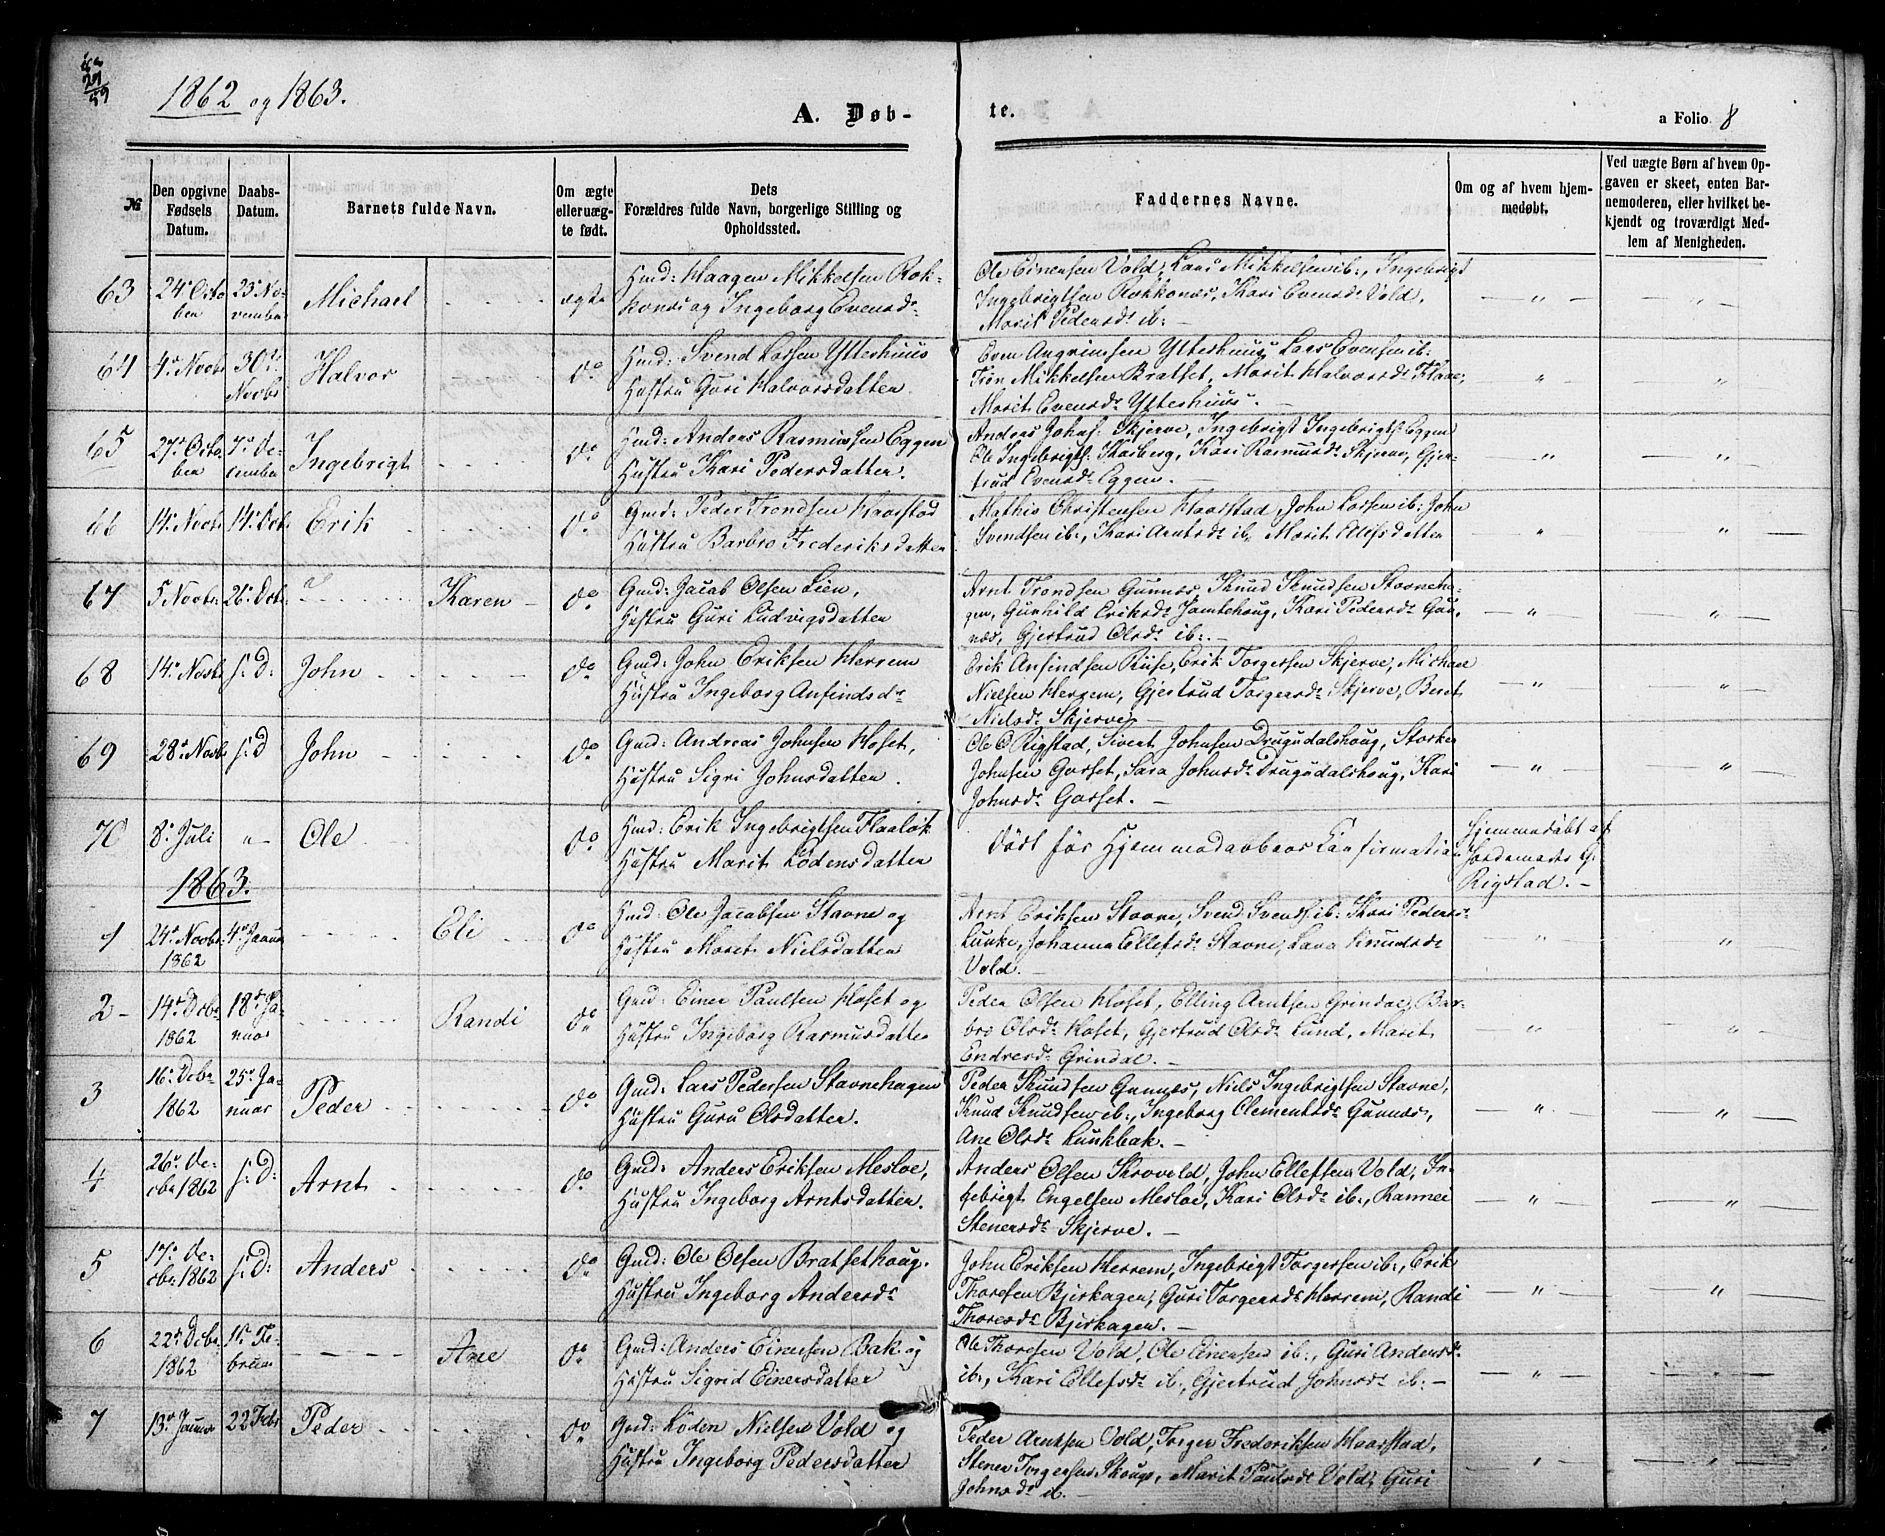 1862 og 1863.
A. Døb-
te.
a Folio 8
№
Den opgivne Fødsels Datum.
Daabs-Datum.
Barnets fulde Navn.
Om ægte eller uæg-te født.
Dets Forældres fulde Navn, borgerlige Stilling og Opholdssted.
Faddernes Navne.
Om og af hvem hjem-medøbt.
Ved uægte Børn af hvem Op-gaven er skeet, enten Bar-nemoderen, eller hvilket be-kjendt og troværdigt Med-lem af Menigheden.
63 24de Octo 23de No- Michael ægte Hmd: Haagen Mikkelsen Rok-
ber vember konæs og Ingeborg Evensd:
Ole Einersen Vold, Lars Mikkelsen ib:, Ingebrigt
Ingebrigtsen Rokkones, Kari Evensdr Vold,
Marit Pedersdr ib: —
64 4de Novbr 30te Novbr Halvor do Hmd: Svend Larsen Ytterhuus
Hustru Guri Halvorsdatter
Even Angrimsen Ytterhuus, Lars Evensen ib:
Tron Mikkelsen Bratset, Marit Halvorsdr Flaae,
Marit Evensdr Ytterhuus. —
65 27de Octo 7de De- Ingebrigt do Hmd: Anders Rasmussen Eggen
ber cember Hustru Kari Pedersdatter.
Anders Johns. Skjerve, Ingebrigt Ingebrigts. Eggen
Ole Ingebrigts: Kaasberg, Kari Rasmusdr Skjerve, Gjer-
trud Evensdr Eggen. —
66 14de Novbr 14de Dcbr Erik do Gmd: Peder Trondsen Haarstad
Hustru Barbro Frederiksdatter
Mathis Christensen Haarstad, John Larsen ib: John
Svendsen ib:, Kari Arntsdr ib, Marit Ellefsdatter
67 5 Novbr 26de Dcbr Karen do Gmd: Jacob Olsen Lien,
Hustru Guri Ludvigsdatter
Arnt Trondsen Gunnes, Knud Knudsen Stavneha-
gen, Gunhild Eriksdr Jamtehoug, Kari Pedersdr Gun-
nes, Gjertrud Olsdr ib: —
68 14de Novbr s: D: John do Gmd: John Eriksen Herrem
Hustru Ingeborg Anfindsdr
Erik Anfindsen Riise, Erik Torgersen Skjerve, Michael
Nielsen Herrem, Gjertrud Torgersdr Skjerve, Beret
Nielsdr Skjerve —
69 28de Novbr s: D John do Gmd: Andreas Johnsen Hoset,
Hustru Sigri Johnsdatter.
Ole O Rigstad, Sivert Johnsen Drugudalshoug, Storker
Johnsen Gorset, Sara Johnsdr Drugudalshoug, Kari
Johnsdr Gorset. —
70 8de Juli " Ole do Hmd: Erik Ingebrigtsen Flaaløk
Hustru Marit Lødensdatter
Død før Hjemmedaabens Confirmation
Hjemmedøbt af
Jordemoder G.
Rigstad. —
1863.
1 24de Novbr 4de Januar Eli do Hmd: Ole Jacobsen Stavne og
1862 Hustru Marit Nielsdatter
Arnt Eriksen Stavne, Svend Svends. ib: Kari Pedersdr
Lunke, Johanna Ellefsdr Stavne, Lava Knudsdr
Vold. —
2 14de Dcbr 18de Ja- Randi do Gmd: Einer Paulsen Hoset og
1862 nuar Hustru Ingeborg Rasmusdatter
Peder Olsen Hoset, Elling Arntsen Grindal, Bar-
bro Olsdr Hoset, Gjertrud Olsdr Lund, Marit
Endresdr Grindal. —
3 16de Dcbr 25de Ja- Peder do Gmd: Lars Pedersen Stavnehagen
1862 nuar Hustru Guru Olsdatter.
Peder Knudsen Gunnes, Niels Ingebrigtsen Stavne,
Knud Knudsen ib:, Ingeborg Clementsdr Gunnes,
Ane Olsdr Lunkbak. —
4 26de De- s: D: Arnt do Gmd: Anders Eriksen Mesloe,
cbr 1862 Hustru Ingeborg Arntsdatter.
Anders Olsen Skovold, John Ellefsen Vold, In-
gebrigt Engelsen Mesloe, Kari Olsdr ib:, Rannei
Stenersdr Skjerve. —
5 17de De- s: D: Anders do Gmd: Ole Olsen Bratsethoug.
cbr. 1862 Hustru Ingeborg Andersdr
John Eriksen Herrem, Ingebrigt Torgersen ib:, Erik
Thoresen Bjerkagen, Guri Torgersdr Herrem, Randi
Thoresdr Bjerkagen. —
6 22de Dcbr 1ste Fe- Ane do Gmd: Anders Einersen Bak og
1862 bruar Hustru Sigrid Einersdatter
Ole Thoresen Vold, Ole Einersen ib:, Guri Andersdr
ib:, Kari Ellefsdr ib, Gjertrud Johnsdr ib: —
7 13de Januar 22 Febr Peder do Gmd: Løden Nielsen Vold og
Hustru Ingeborg Pedersdatter
Peder Arntsen Vold, Torger Frederiksen Haarstad,
Stener Torgersen Skouge, Marit Paulsdr Vold, Guri
Johnsdr ib. —